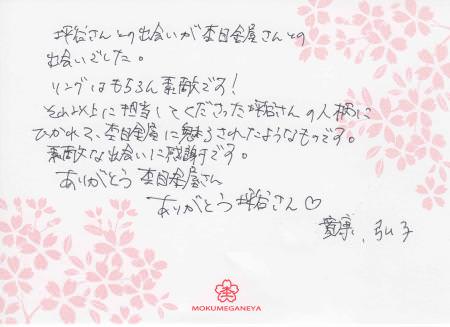 坪谷さんとの出会いが杢目金屋さんとの
出会いでした。
リングはもちろん素敵です！
それ以上に担当してくださった坪谷さんの人柄に
ひかれて、杢目金屋に魅了されたようなものです。
素敵な出会いに感謝です。
ありがとう 杢目金屋さん
ありがとう坪谷さん♡
寛康、弘子
MOKUMEGANEYA